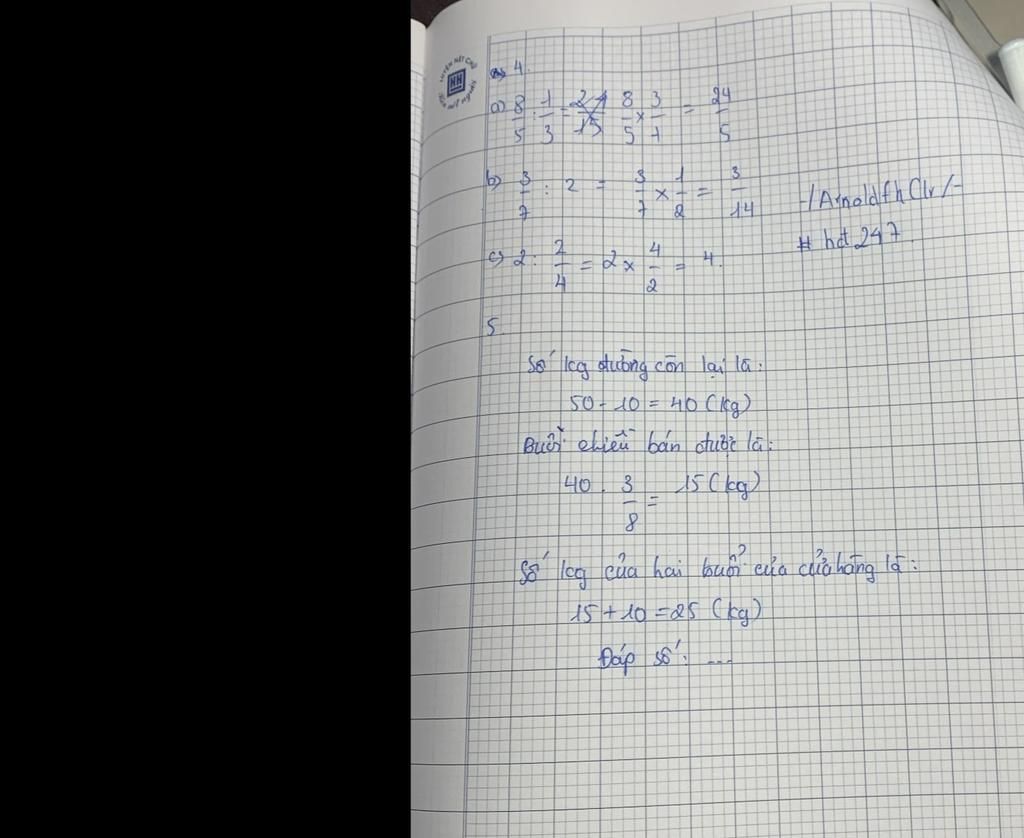 4.
a) 8/5 : 1/3 = 8/5 × 3/1 = 24/5
b) 3/7 : 2 = 3/7 × 1/2 = 3/14
-/ArnoldfhClv/-
# hdt247
c) 2 : 2/4 = 2 × 4/2 = 4.
5.
Số kg đường còn lại là:
50 - 10 = 40 (kg)
Buổi chiều bán được là:
40 . 3/8 = 15 (kg)
Số kg của hai buổi của cửa hàng là:
15 + 10 = 25 (kg)
Đáp số: ...